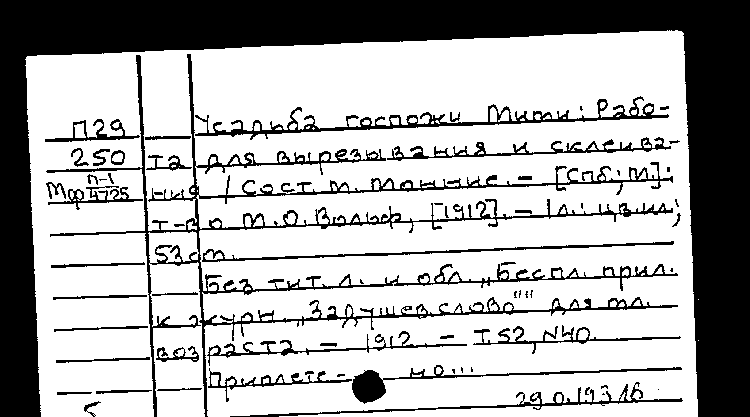 П29
250
Мф п-1/4725
Усадьба госпожи Мими: Рабо-
та для вырезывания и склеива-
ния / Сост. М. Маннис. – [Спб.; М.]:
т-во М.О. Вольф, [1912]. – 1 л.: цв. ил.;
53 cm.
Без тит. л. и обл. „Беспл. прил.
к журн. „Задушев. слово"" для мл.
возраста. – 1912. – Т.52, N40.
Приплете- но...